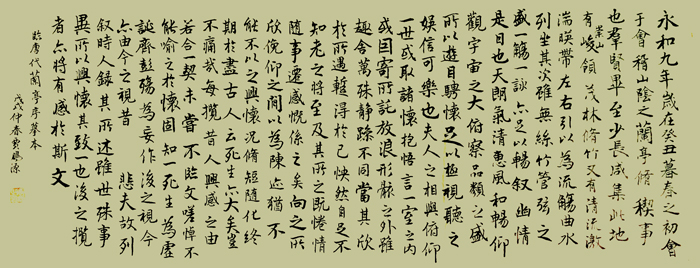 永和九年歲在癸丑暮春之初會
于會稽山陰之蘭亭脩稧事
也羣賢畢至少長咸集此地
有崇山峻領茂林脩竹又有清流激
湍暎帶左右引以為流觴曲水
列坐其次雖無絲竹管弦之
盛一觴一詠亦足以暢叙幽情
是日也天朗氣清惠風和暢仰
觀宇宙之大俯察品類之盛
所以遊目騁懷足以極視聽之
娛信可樂也夫人之相與俯仰
一世或取諸懷抱悟言一室之內
或因寄所託放浪形骸之外雖
趣舍萬殊靜躁不同當其欣
於所遇蹔得於己怏然自足不
知老之將至及其所之既惓情
隨事遷感慨係之矣向之所
欣俛仰之間以為陳迹猶不
能不以之興懷況脩短隨化終
期於盡古人云死生亦大矣豈
不痛哉每攬昔人興感之由
若合一契未嘗不臨文嗟悼不
能喻之於懷固知一死生為虛
誕齊彭殤為妄作後之視今
亦由今之視昔 悲夫故列
叙時人錄其所述雖世殊事
異所以興懷其致一也後之攬
者亦將有感於斯文
臨唐代蘭亭序摹本
戊戌仲春